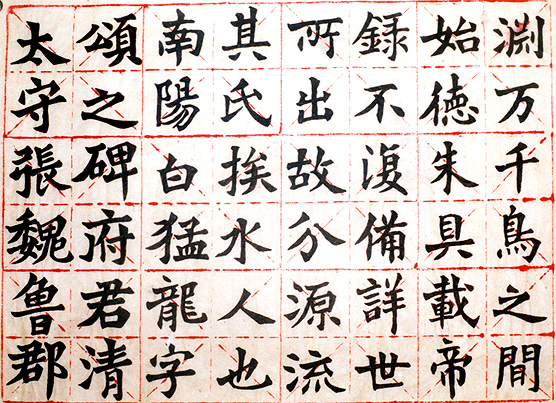 太守張魏魯郡
頌之碑府君清
南陽白猛龍字
其氏挨水人也
所出故分源流
録不復備詳世
始徳朱具載帝
淵万千鳥之間